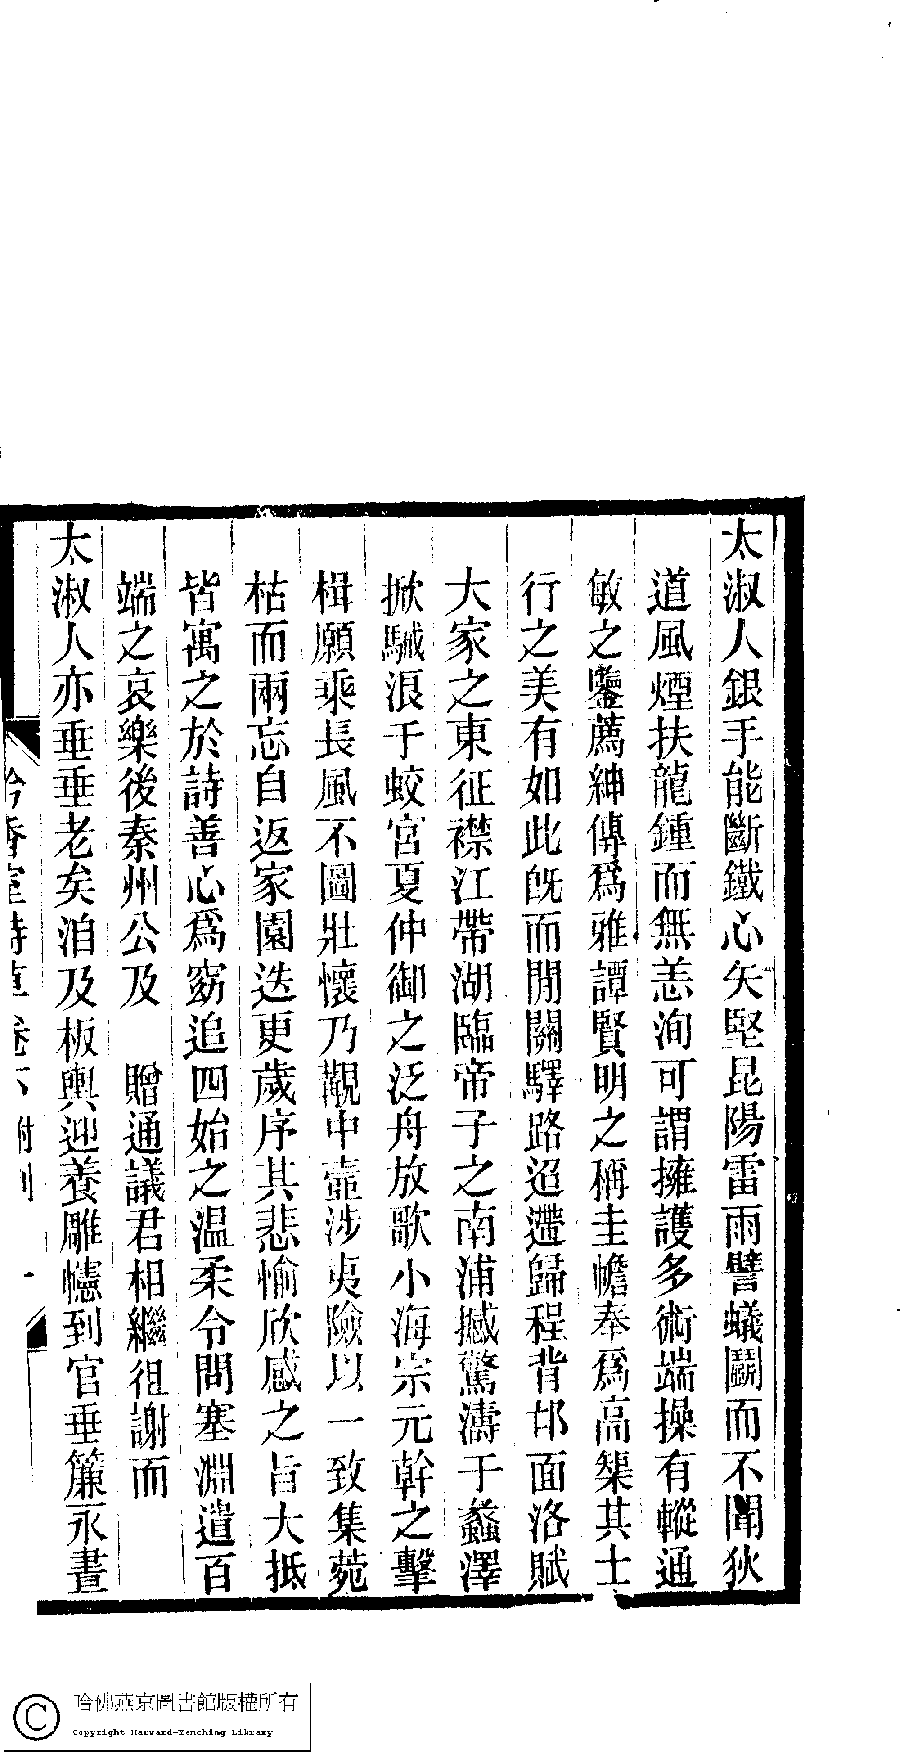 太淑人銀手能斷鐵心矢堅昆陽雷雨譬蟻鬭而不聞狄
道風煙扶龍鍾而無恙洵可謂擁護多術端操有轍通
敏之鑒薦紳傳爲雅譚賢明之稱圭幨奉爲高榘其士
行之美有如此旣而閒關驛路迢遭歸程背邙面洛賦
大家之東征襟江帶湖臨帝子之南浦撼驚濤于蠡澤
掀駴浪于蛟宮夏仲御之泛舟放歌小海宗元幹之擊
楫願乘長風不圖壯懷乃觀中壼涉夷險以一致集菀
枯而兩忘自返家園迭更歲序其悲愉欣感之旨大抵
皆寓之於詩善心爲窈追四始之温柔令問塞淵遣百
端之哀樂後秦州公及 贈通議君相繼徂謝而
太淑人亦垂垂老矣洎及板輿迎養雕幰到官垂簾永晝
吟香室詩草 卷下 附刻 一
哈佛燕京圖書館版權所有
Copyright Harvard-Yenching Library